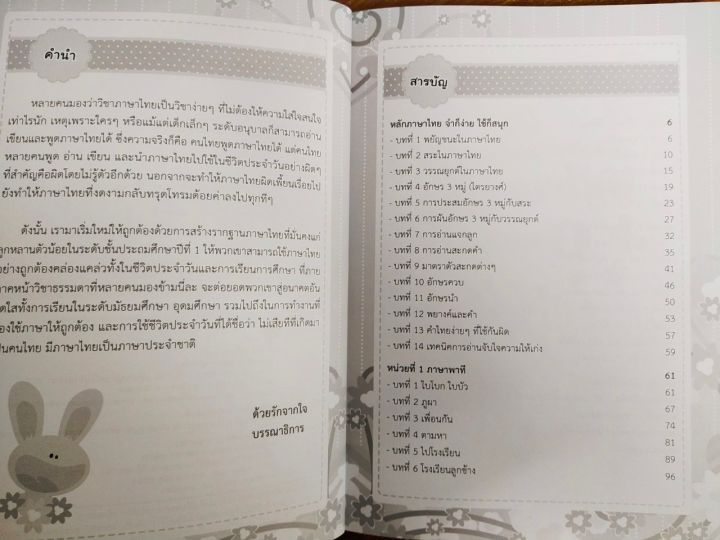 คำนำ
หลายคนมองว่าวิชาภาษาไทยเป็นวิชาง่ายๆ ที่ไม่ต้องให้ความใส่ใจสนใจ
เท่าไรนัก เหตุเพราะใครๆ หรือแม้แต่เด็กเล็กๆ ระดับอนุบาลก็สามารถอ่าน
เขียนและพูดภาษาไทยได้ ซึ่งความจริงก็คือ คนไทยพูดภาษาไทยได้ แต่คนไทย
หลายคนพูด อ่าน เขียน และนำภาษาไทยไปใช้ในชีวิตประจำวันอย่างผิดๆ
ที่สำคัญคือผิดโดยไม่รู้ตัวอีกด้วย นอกจากจะทำให้ภาษาไทยผิดเพี้ยนเรื่อยไป
ยังทำให้ภาษาไทยที่งดงามกลับทรุดโทรมด้อยค่าลงไปทุกทีๆ
ดังนั้น เรามาเริ่มใหม่ให้ถูกต้องด้วยการสร้างรากฐานภาษาไทยที่มั่นคงแก่
ลูกหลานตัวน้อยในระดับชั้นประถมศึกษาปีที่ 1 ให้พวกเขาสามารถใช้ภาษาไทย
อย่างถูกต้องคล่องแคล่วทั้งในชีวิตประจำวันและการเรียนการศึกษา ที่ภาย
ภาคหน้าวิชาธรรมดาที่หลายคนมองข้ามนี่ละ จะต่อยอดพวกเขาสู่อนาคตอัน
สดใสทั้งการเรียนในระดับมัธยมศึกษา อุดมศึกษา รวมไปถึงในการทำงานที่
ต้องใช้ภาษาให้ถูกต้อง และการใช้ชีวิตประจำวันที่ได้ชื่อว่า ไม่เสียทีที่เกิดมา
เป็นคนไทย มีภาษาไทยเป็นภาษาประจำชาติ
ด้วยรักจากใจ
บรรณาธิการ
สารบัญ
หลักภาษาไทย จำก็ง่าย ใช้ก็สนุก 6
- บทที่ 1 พยัญชนะในภาษาไทย 6
- บทที่ 2 สระในภาษาไทย 10
- บทที่ 3 วรรณยุกต์ในภาษาไทย 15
- บทที่ 4 อักษร 3 หมู่ (ไตรยางศ์) 19
- บทที่ 5 การประสมอักษร 3 หมู่กับสระ 23
- บทที่ 6 การผันอักษร 3 หมู่กับวรรณยุกต์ 27
- บทที่ 7 การอ่านแจกลูก 32
- บทที่ 8 การอ่านสะกดคำ 35
- บทที่ 9 มาตราตัวสะกดต่างๆ 41
- บทที่ 10 อักษรควบ 46
- บทที่ 11 อักษรนำ 50
- บทที่ 12 พยางค์และคำ 53
- บทที่ 13 คำไทยง่ายๆ ที่ใช้กันผิด 57
- บทที่ 14 เทคนิคการอ่านจับใจความให้เก่ง 59
หน่วยที่ 1 ภาษาพาที 61
- บทที่ 1 ใบโบก ใบบัว 61
- บทที่ 2 ภูผา 67
- บทที่ 3 เพื่อนกัน 74
- บทที่ 4 ตามหา 81
- บทที่ 5 ไปโรงเรียน 89
- บทที่ 6 โรงเรียนลูกช้าง 96